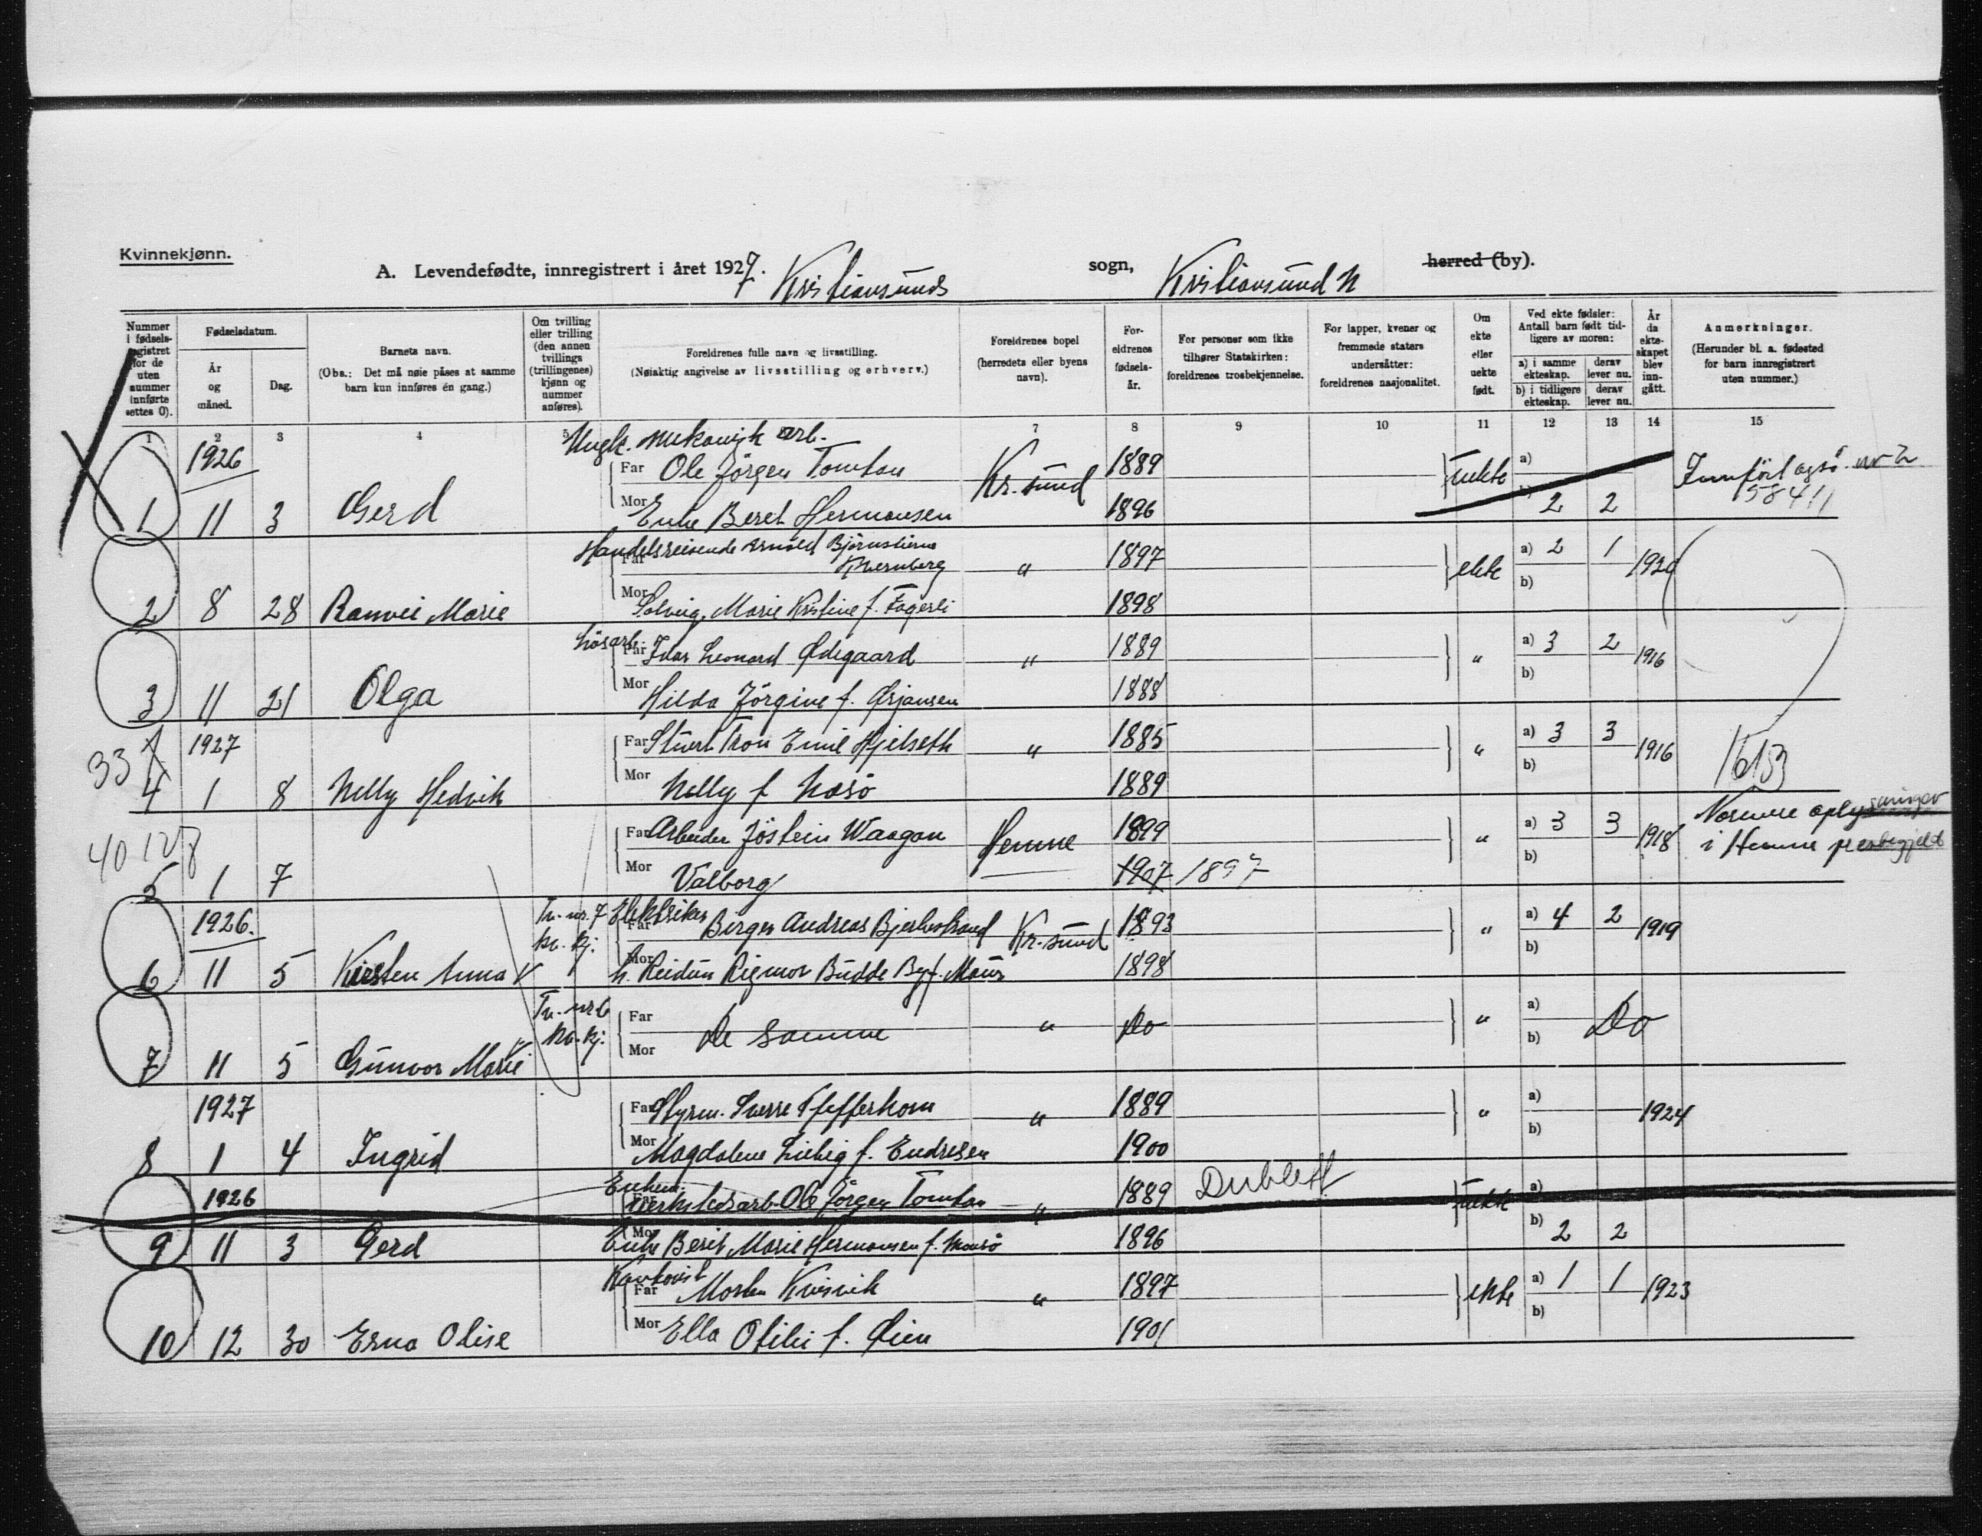 Kvinnekjønn.
A. Levendefødte, innregistrert i året 1927. Kristiansunds sogn, Kristiansund N herred (by).
Nummer i fødselsregistret for de uten nummer innførte settes 0).
Fødselsdatum.
År og måned.
Dag.
Barnets navn.
(Obs.: Det må nøie påses at samme barn kun innføres én gang.)
Om tvilling eller trilling (den annen tvillings (trillingenes) kjønn og nummer anføres).
Foreldrenes fulle navn og livsstilling.
(Nøiaktig angivelse av livsstilling og erhverv.)
Foreldrenes bopel (herredets eller byens navn).
Foreldrenes fødselsår.
For personer som ikke tilhører Statskirken: foreldrenes trosbekjennelse.
For lapper, kvener og fremmede staters undersåtter: foreldrenes nasjonalitet.
Om ekte eller uekte født.
Ved ekte fødsler: Antall barn født tidligere av moren:
a) i samme ekteskap. derav lever nu.
b) i tidligere ekteskap. derav lever nu.
År da ekteskapet blev inngått.
Anmerkninger.
(Herunder bl. a. fødested for barn innregistrert uten nummer.)
1 2 3 4 5 7 8 9 10 11 12 13 14 15
1926 Ungk. arb.
Far Ole Jörgen Tomtan Kr.sund 1889 uekte a) Innfört også nr
1 11 3 Gerd Mor Enke Beret Hermansen 1896 b) 2 2 58411
Handelsreisende Arnold Björnstierne
Far Kvernberg " 1897 ekte a) 2 1 192
2 8 28 Ranvei Marie Mor Solveig Marie Kristine f. Fagerli 1898 b)
Lösarb.
Far Idar Leonard Ødegaard " 1889 " a) 3 2 1916
3 11 21 Olga Mor Hilda Jörgine f. Ørjansen 1888 b)
33 1927 Far Stuert Tron Emil Hjelseth " 1885 " a) 3 3 1916
4 1 8 Nelly Hedvik Mor Nelly f. Næsö 1889 b) 1613
40 128 Far Arbeider Jöstein Waagan Hemne 1899 " a) 3 3 1918 Nærmere oplysninger
5 1 7 Mor Valborg 1907 1897 b) i Hemne prestegjeld
1926. Tv. nr. 7 Elektriker
kv. kj. Far Birger Andreas Bjerkestrand Kr.sund 1893 " a) 4 2 1919
6 11 5 Kirsten Anna Mor h. Reidun Rigmor Budde By f. Maurs 1898 b)
Tv. nr 6
kv. kj. Far De samme " Do " a) Do
7 11 5 Gunvor Marie Mor b)
1927 Far Styrm. Sverre Pfefferkorn " 1889 " a) 1924
8 1 4 Ingrid Mor Magdalene Liebig f. Endresen 1900 b)
1926 Enkem.
Far Verkstedsarb. Ole Jörgen Tomtan " 1889 Dublett uekte a)
9 11 3 Gerd Mor Enke Berit Marie Hermansen f. 1896 b) 2 2
Kontorist
Far Morten Kvisvik " 1897 ekte a) 1 1 1923
10 12 30 Erna Olise Mor Ella Otilie f. Øien 1901 b)